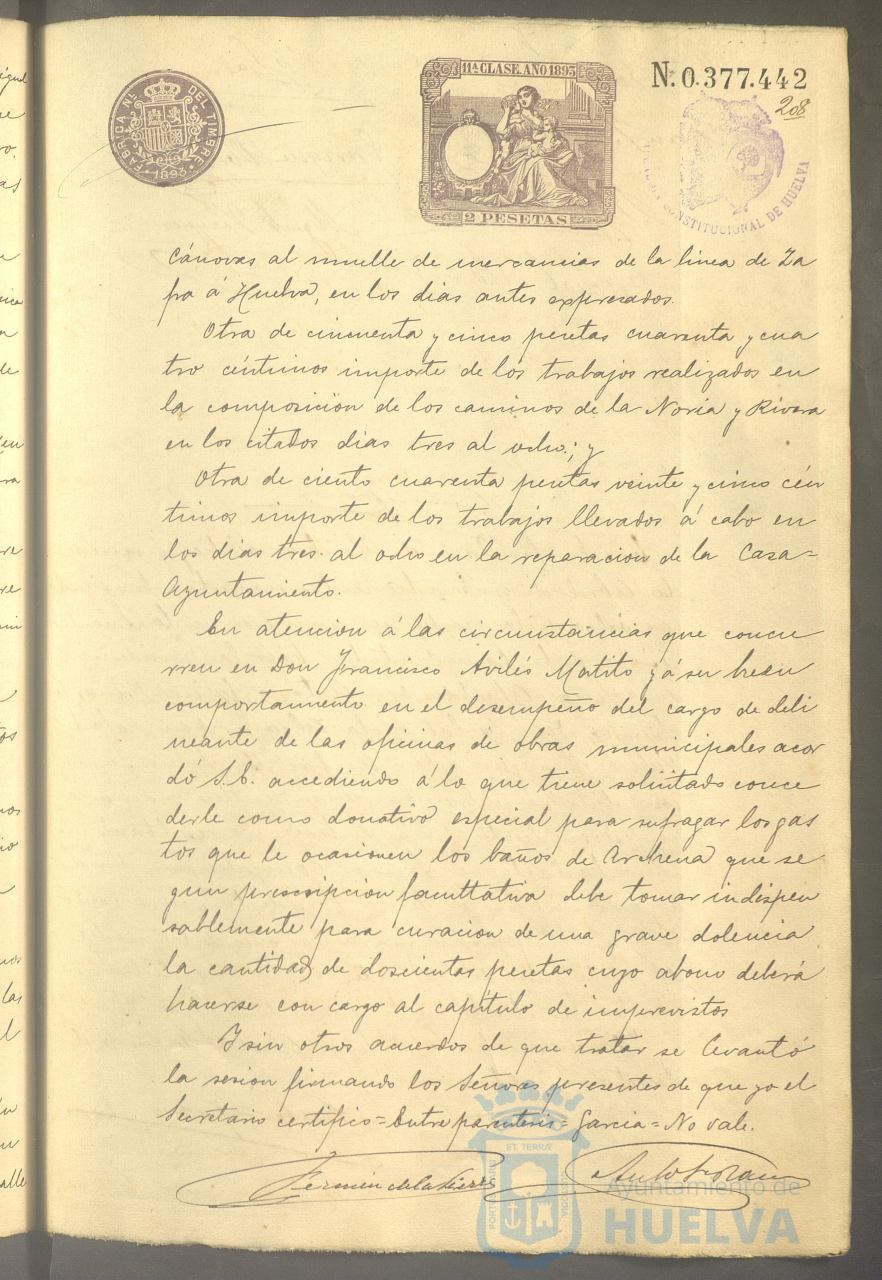 FABRICA NAL DEL TIMBRE
1893
11ª CLASE. AÑO 1893
2 PESETAS
N. 0.377.442
208
CONSTITUCIONAL DE HUELVA
Cánovas al muelle de mercancias de la linea de Za
fra á Huelva, en los dias antes expresados.
Otra de cincuenta y cinco pesetas cuarenta y cua
tro céntimos importe de los trabajos realizados en
la composicion de los caminos de la Noria y Rivera
en los citados dias tres al ocho; y
Otra de ciento cuarenta pesetas veinte y cinco cén
timos importe de los trabajos llevados á cabo en
los dias tres al ocho en la reparacion de la Casa=
Ayuntamiento.
En atencion á las circunstancias que concu
rren en Don Francisco Avilés Matito y á su buen
comportamiento en el desempeño del cargo de deli
neante de las oficinas de obras municipales acor
dó S.E. accediendo á lo que tiene solicitado conce
derle como donativo especial para sufragar los gas
tos que le ocasionen los baños de Archena que se
gun prescripcion facultativa debe tomar indispen
sablemente para curacion de una grave dolencia
la cantidad de doscientas pesetas cuyo abono deberá
hacerse con cargo al capítulo de imprevistos
Y sin otros acuerdos de que tratar se levantó
la sesion firmando los Señores presentes de que yo el
Secretario certifico = Entre parentesis = Garcia = No vale.
Fermin de la Sierra
Ayuntamiento de
HUELVA